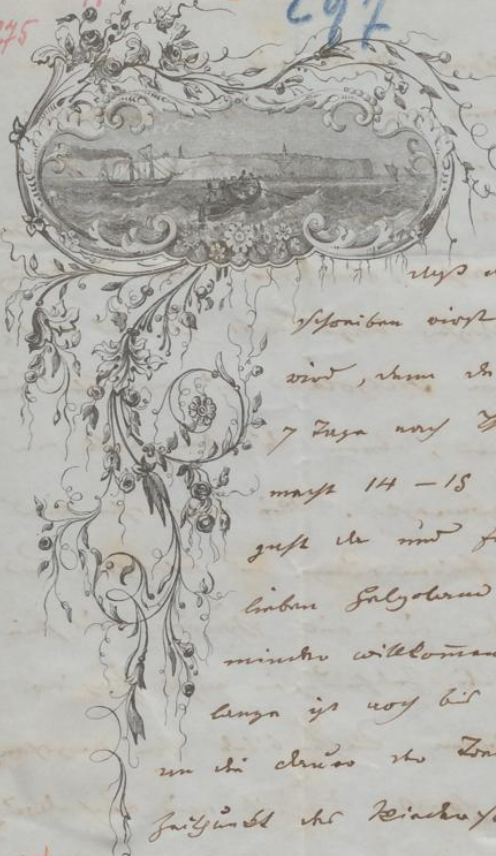 275
297
daß
schreiben wirst
wird, denn
7 Tage nach
macht 14 – 15
geht und
lieben Helgoland
minder willkommen
lange ist noch bis
die Dauer
Zeitpunkt des Wieders